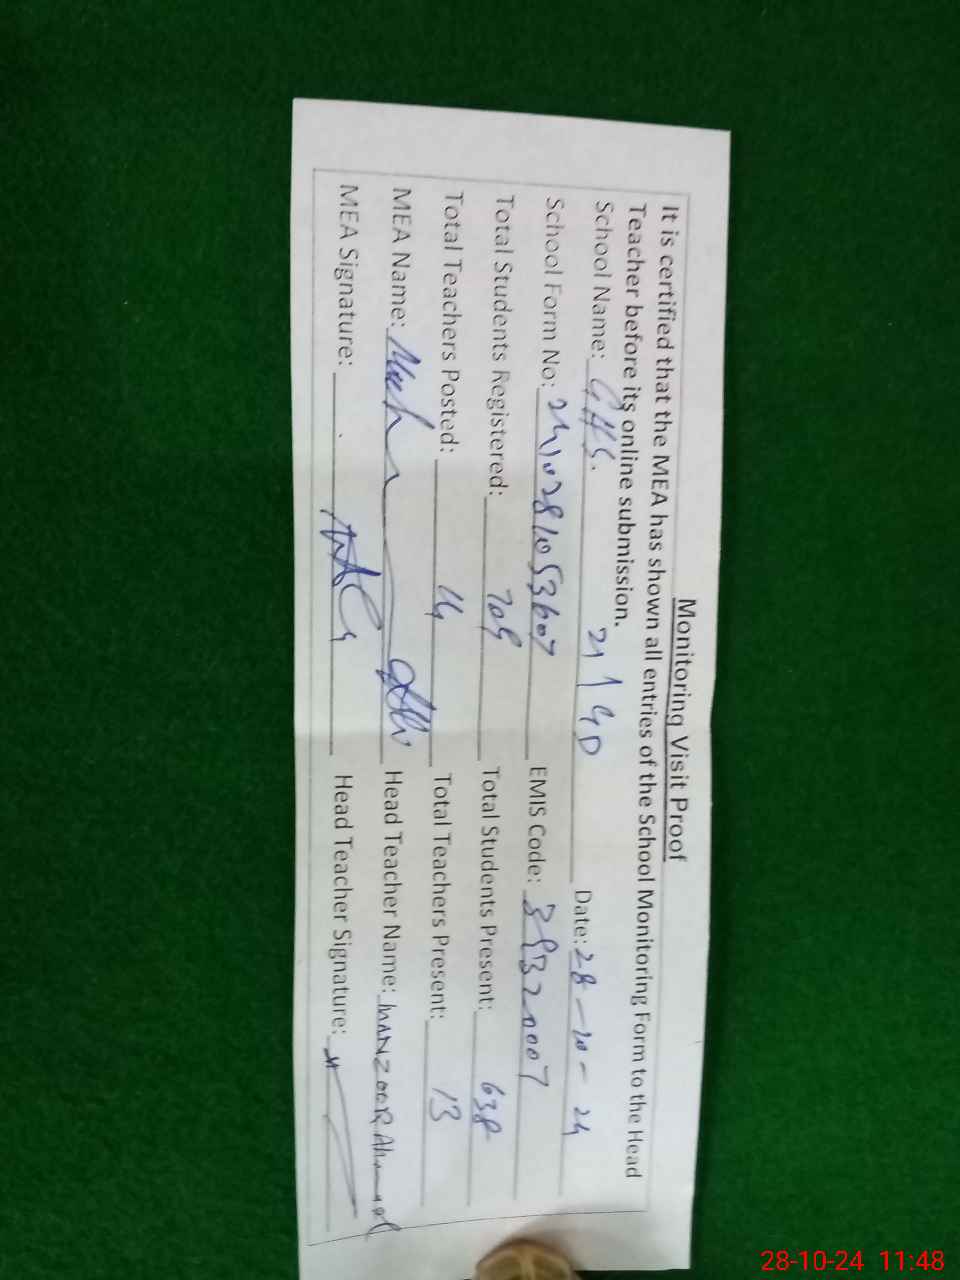 Monitoring Visit Proof
It is certified that the MEA has shown all entries of the School Monitoring Form to the Head
Teacher before its online submission.
School Name: GHS. 21 1 GD Date: 28-10-24
School Form No: 2410281053607 EMIS Code: 39320007
Total Students Registered: 709 Total Students Present: 638
Total Teachers Posted: 14 Total Teachers Present: 13
MEA Name: Head Teacher Name: MANZOOR Ahmad
MEA Signature: Head Teacher Signature:
28-10-24 11:48